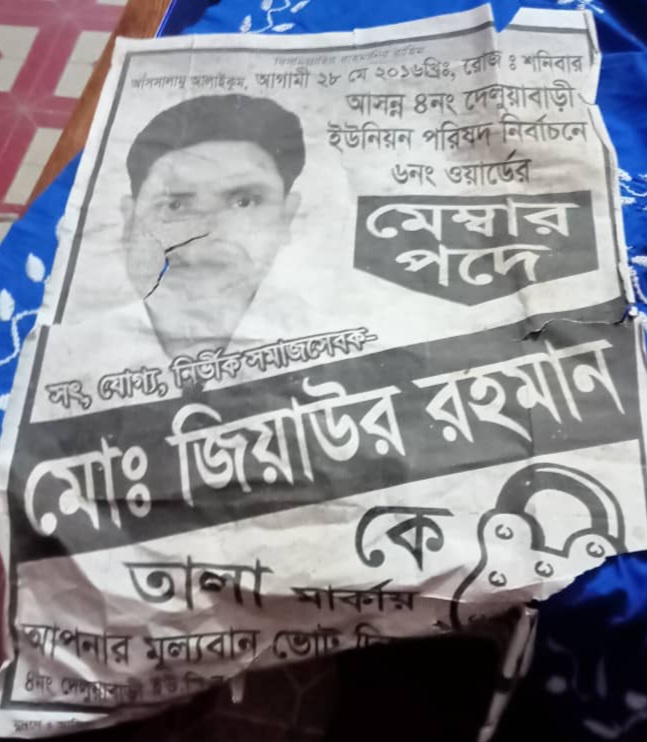 বিসমিল্লাহির রাহমানির রাহিম
আসসালামু আলাইকুম, আগামী ২৮ মে ২০১৬খ্রিঃ, রোজ ঃ শনিবার
আসন্ন ৪নং দেলুয়াবাড়ী
ইউনিয়ন পরিষদ নির্বাচনে
৬নং ওয়ার্ডের
মেম্বার
পদে
সৎ, যোগ্য, নির্ভীক সমাজসেবক-
মোঃ জিয়াউর রহমান
কে
তালা মার্কায়
আপনার মূল্যবান ভোট
৪নং দেলুয়াবাড়ী